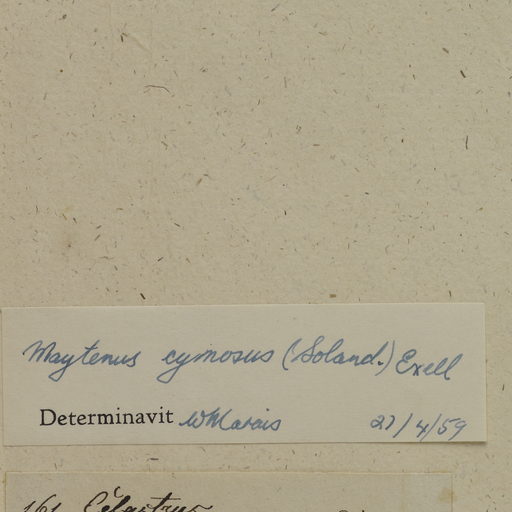 Maytenus cymosus (Soland.) Exell
Determinavit W Marais 27/4/59
161 Celastrus